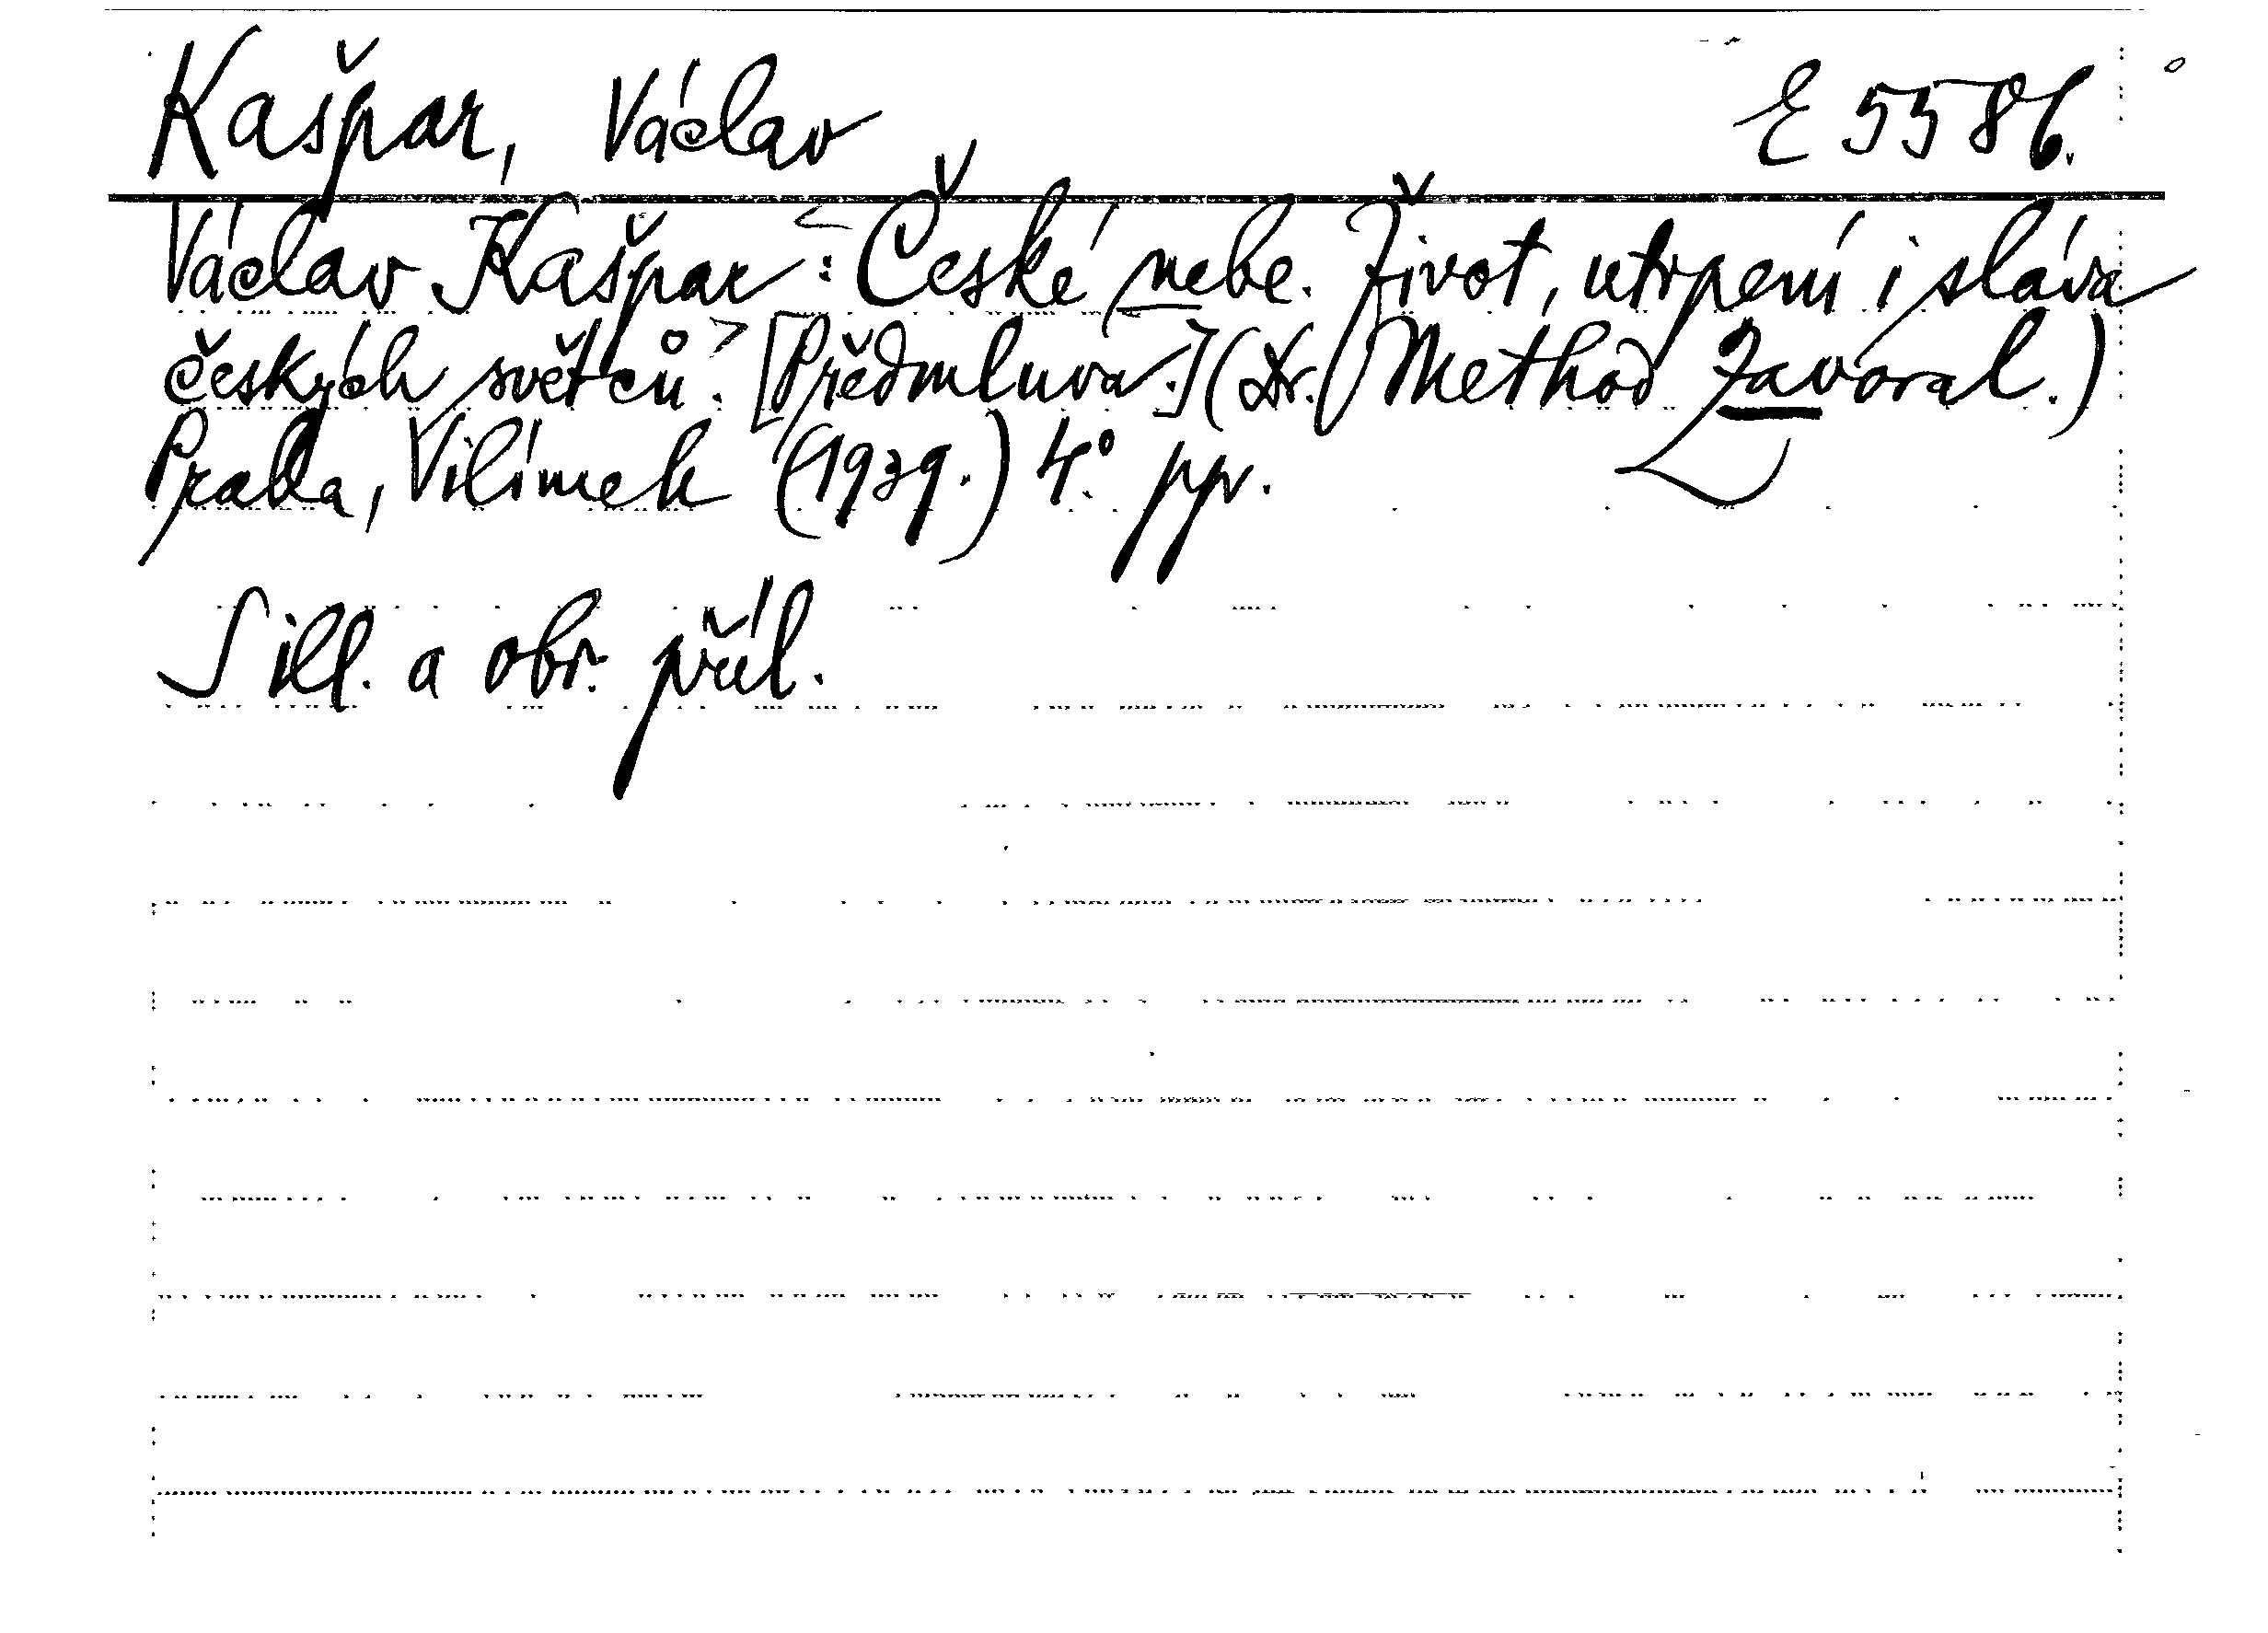 Kašpar, Václav E 5586.
Václav Kašpar: České nebe. Život, utrpení i sláva
českých světců. [Předmluva.] (Dr. Method Zavoral.)
Praha, Vilímek (1939.) 4° pp.
S ill. a obr. příl.